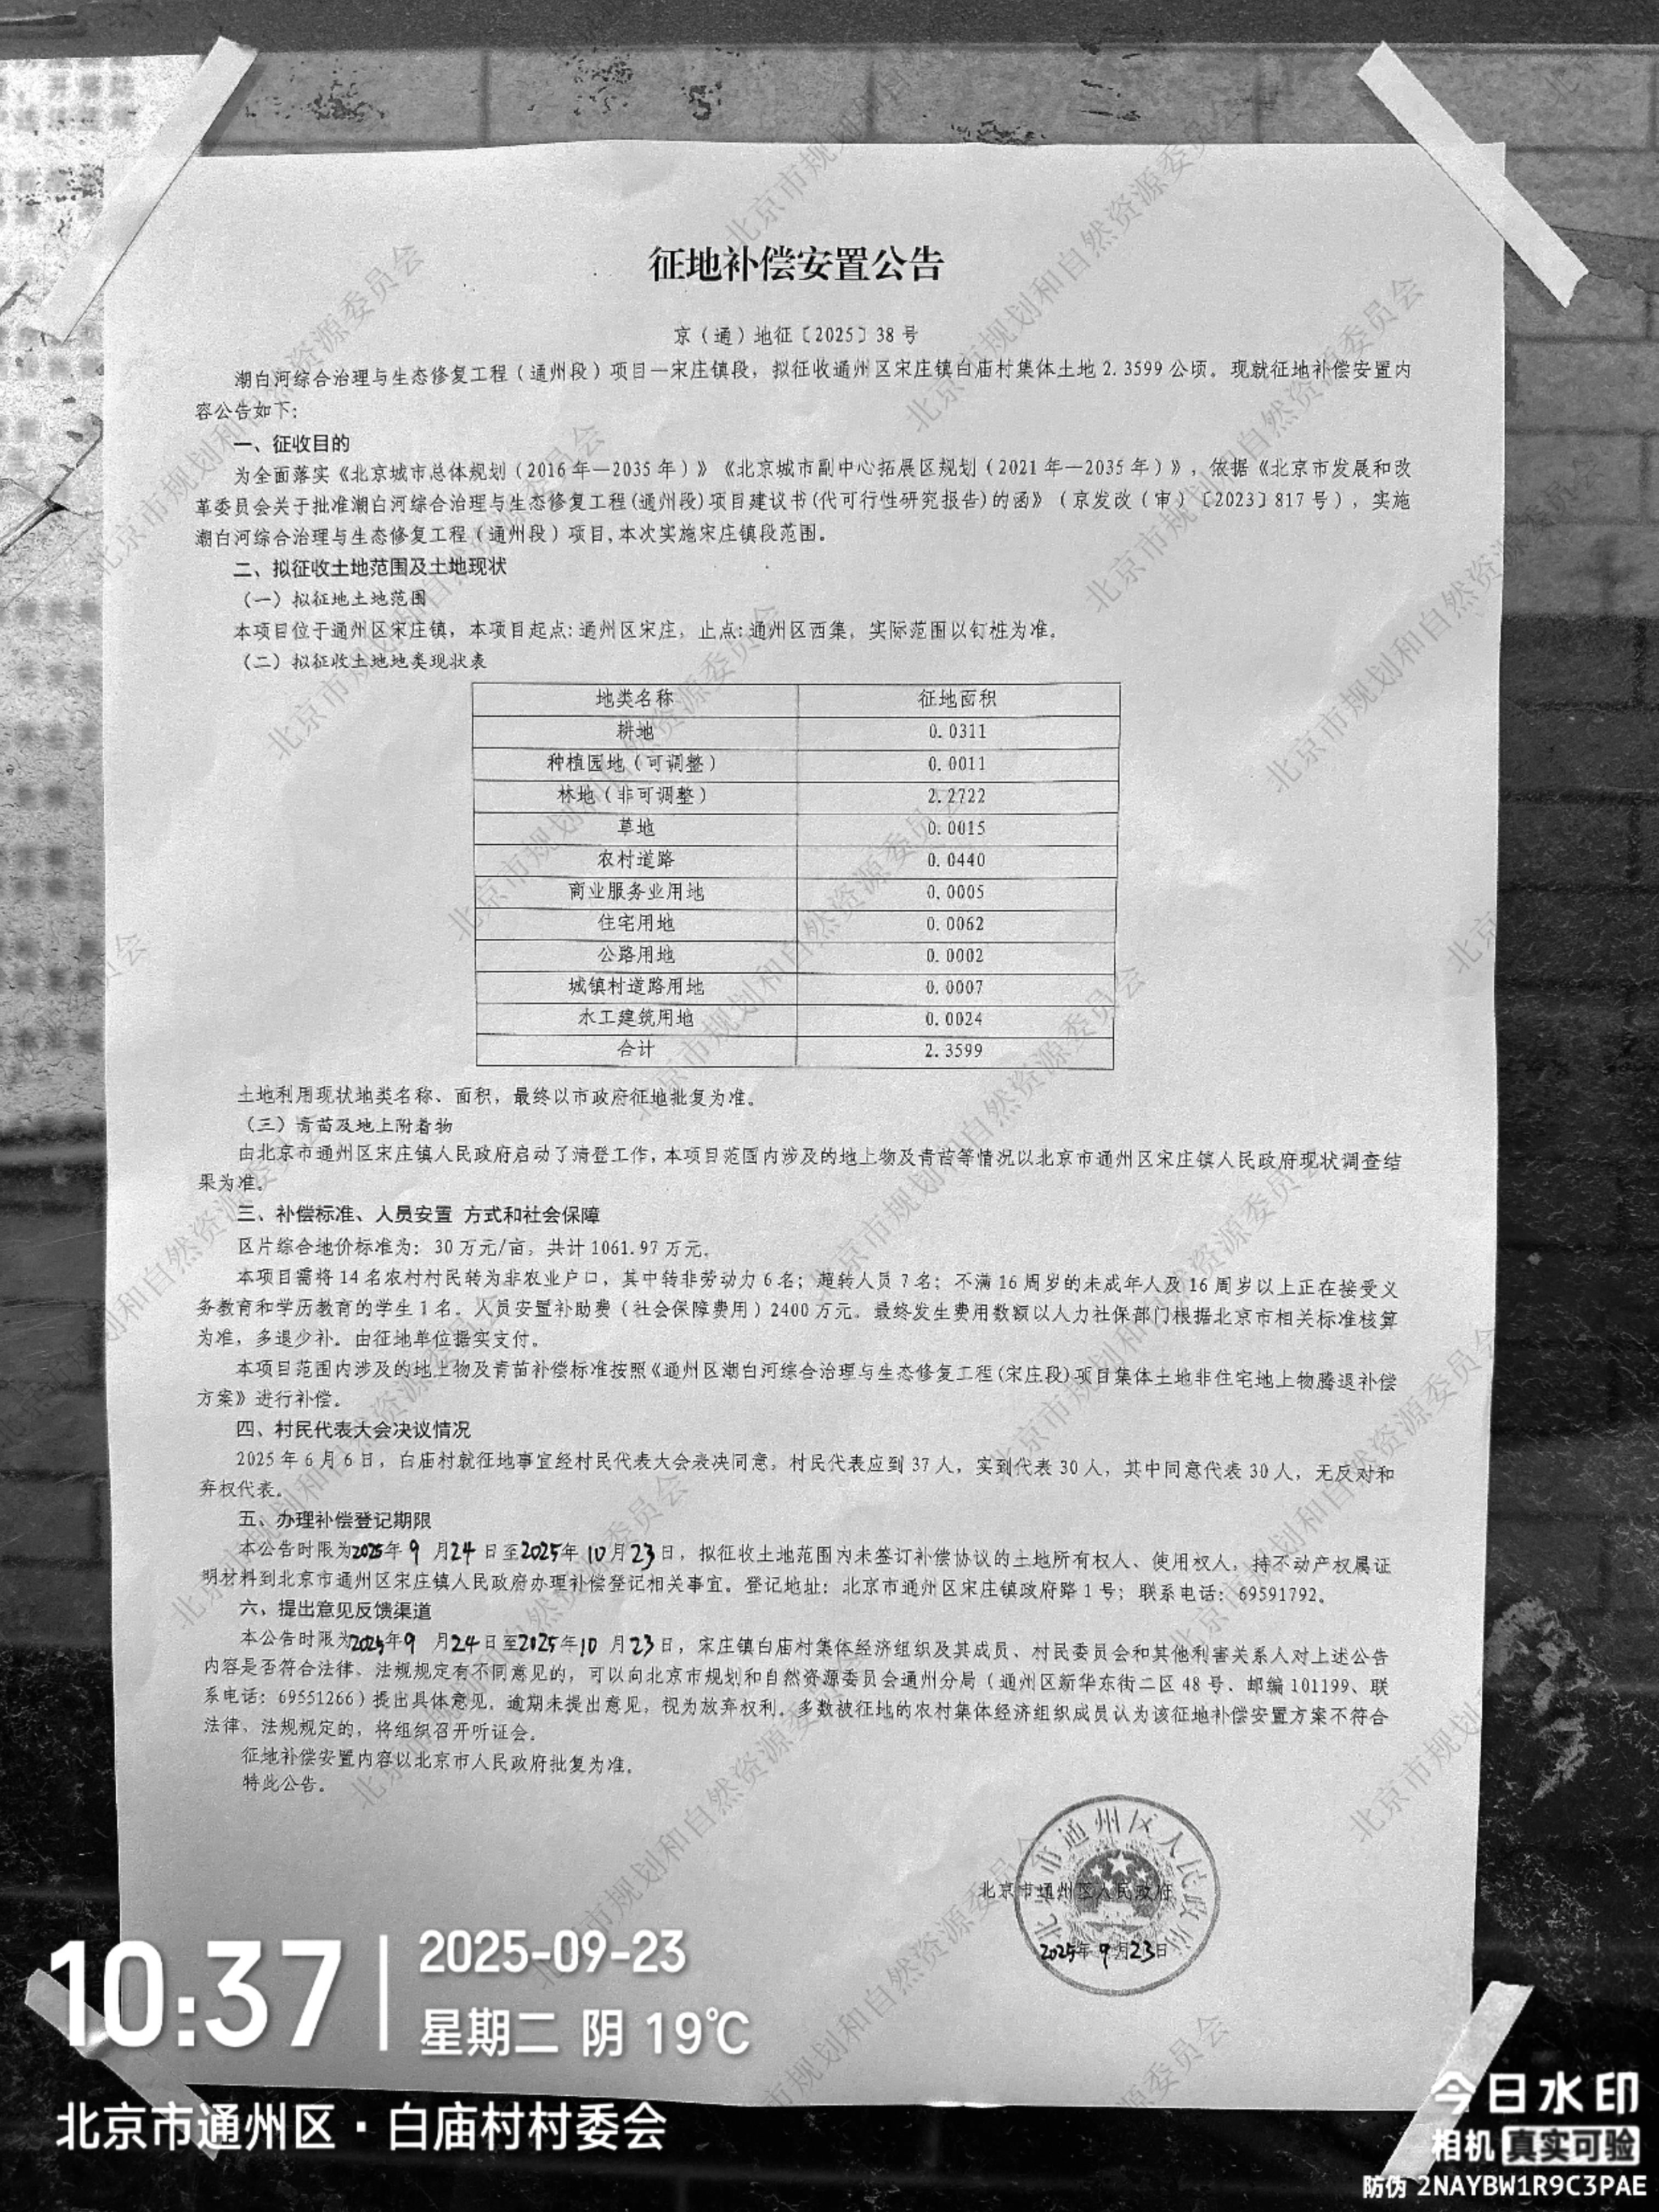 征地补偿安置公告
京（通）地征〔2025〕38 号
潮白河综合治理与生态修复工程（通州段）项目—宋庄镇段，拟征收通州区宋庄镇白庙村集体土地 2.3599 公顷。现就征地补偿安置内
容公告如下：
一、征收目的
为全面落实《北京城市总体规划（2016 年—2035 年）》《北京城市副中心拓展区规划（2021 年—2035 年）》，依据《北京市发展和改
革委员会关于批准潮白河综合治理与生态修复工程(通州段)项目建议书(代可行性研究报告)的函》（京发改（审）〔2023〕817 号），实施
潮白河综合治理与生态修复工程（通州段）项目,本次实施宋庄镇段范围。
二、拟征收土地范围及土地现状
（一）拟征地土地范围
本项目位于通州区宋庄镇，本项目起点:通州区宋庄，止点:通州区西集，实际范围以钉桩为准。
（二）拟征收土地地类现状表
地类名称 征地面积
耕地 0.0311
种植园地（可调整） 0.0011
林地（非可调整） 2.2722
草地 0.0015
农村道路 0.0440
商业服务业用地 0.0005
住宅用地 0.0062
公路用地 0.0002
城镇村道路用地 0.0007
水工建筑用地 0.0024
合计 2.3599
土地利用现状地类名称、面积，最终以市政府征地批复为准。
（三）青苗及地上附着物
由北京市通州区宋庄镇人民政府启动了清登工作,本项目范围内涉及的地上物及青苗等情况以北京市通州区宋庄镇人民政府现状调查结
果为准。
三、补偿标准、人员安置 方式和社会保障
区片综合地价标准为：30 万元/亩，共计 1061.97 万元。
本项目需将 14 名农村村民转为非农业户口，其中转非劳动力 6 名；超转人员 7 名；不满 16 周岁的未成年人及 16 周岁以上正在接受义
务教育和学历教育的学生 1 名。人员安置补助费（社会保障费用）2400 万元。最终发生费用数额以人力社保部门根据北京市相关标准核算
为准，多退少补。由征地单位据实支付。
本项目范围内涉及的地上物及青苗补偿标准按照《通州区潮白河综合治理与生态修复工程(宋庄段)项目集体土地非住宅地上物腾退补偿
方案》进行补偿。
四、村民代表大会决议情况
2025 年 6 月 6 日，白庙村就征地事宜经村民代表大会表决同意。村民代表应到 37 人，实到代表 30 人，其中同意代表 30 人，无反对和
弃权代表。
五、办理补偿登记期限
本公告时限为2025年 9 月24 日至2025年 10 月23日，拟征收土地范围内未签订补偿协议的土地所有权人、使用权人，持不动产权属证
明材料到北京市通州区宋庄镇人民政府办理补偿登记相关事宜。登记地址：北京市通州区宋庄镇政府路 1 号；联系电话：69591792。
六、提出意见反馈渠道
本公告时限为2025年9 月24日至2025年10 月23日，宋庄镇白庙村集体经济组织及其成员、村民委员会和其他利害关系人对上述公告
内容是否符合法律、法规规定有不同意见的，可以向北京市规划和自然资源委员会通州分局（通州区新华东街二区 48 号、邮编 101199、联
系电话：69551266）提出具体意见。逾期未提出意见，视为放弃权利。多数被征地的农村集体经济组织成员认为该征地补偿安置方案不符合
法律、法规规定的，将组织召开听证会。
征地补偿安置内容以北京市人民政府批复为准。
特此公告。
北京市通州区人民政府
北京市通州区人民政府
2025年 9 月23日
北京市规划和自然资源委员会
10:37
2025-09-23
星期二 阴 19℃
北京市通州区·白庙村村委会
今日水印
相机 真实可验
防伪 2NAYBW1R9C3PAE